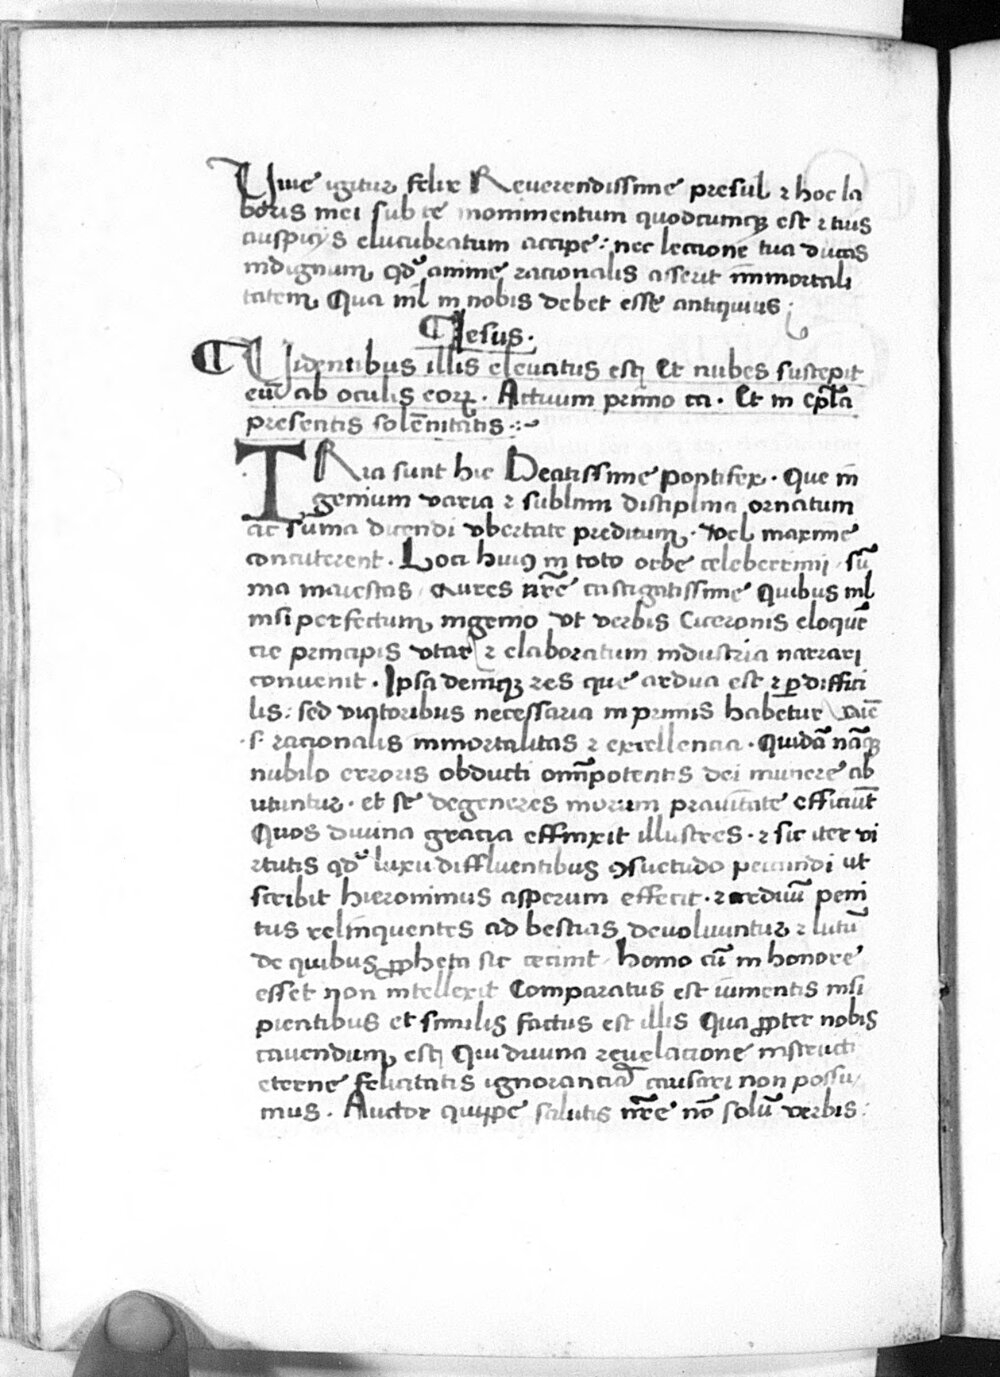 Uiue igitur felix Reuerendissime presul ⁊ hoc la
boris mei sub te monimentum quodcumqȝ est ⁊ tuis
auspicijs elucubratum accipe: nec lectione tua ducas
indignum qd' anime racionalis asserit immortali
tatem Qua nil in nobis debet esse antiquius:
Iesus.
Uidentibus illis eleuatus est Et nubes suscepit
eū ab oculis eoꝝ. Actuum primo ca. Et in ep̄la
presentis solēnitatis
TRia sunt hic Beatissime pontifex. Que in
genium varia ⁊ sublimi disciplina ornatum
ac sūma dicendi vbertate preditum. vel maxime
concuterent. Loci huiꝰ in toto orbe celeberrimi sū
ma maiestas Aures nr̄e castigatissime Quibus nil
nisi perfectum ingenio vt verbis Ciceronis eloquē
cie principis vtar ⁊ elaboratum industria narrari
conuenit. Ipsa deniqȝ res que ardua est ⁊ ꝑdiffici
lis: sed viatoribus necessaria in primis habetur aīe
.s. racionalis immortalitas ⁊ excellencia. Quidā nāqȝ
nubilo erroris obducti omīpotentis dei munere ab
utuntur. et se degeneres morum prauitate efficiūt
Quos diuina gracia effinxit illustres. ⁊ sic iter vi
rtutis qd' luxu diffluentibus ꝯsuetudo peccandi ut
scribit hieronimus asperum effecit. ⁊ arduū peni
tus relinquentes ad bestias deuoluuntur ⁊ lutū
de quibus ꝓpheta sic cecinit Homo cū in honore
esset non intellexit Comparatus est iumentis insi
pientibus et similis factus est illis Qua ꝓpter nobis
cauendum est Qui diuina reuelacione instructi
eterne felicitatis ignorancia causari non possu
mus. Auctor quippe salutis nr̄e nō solū verbis: